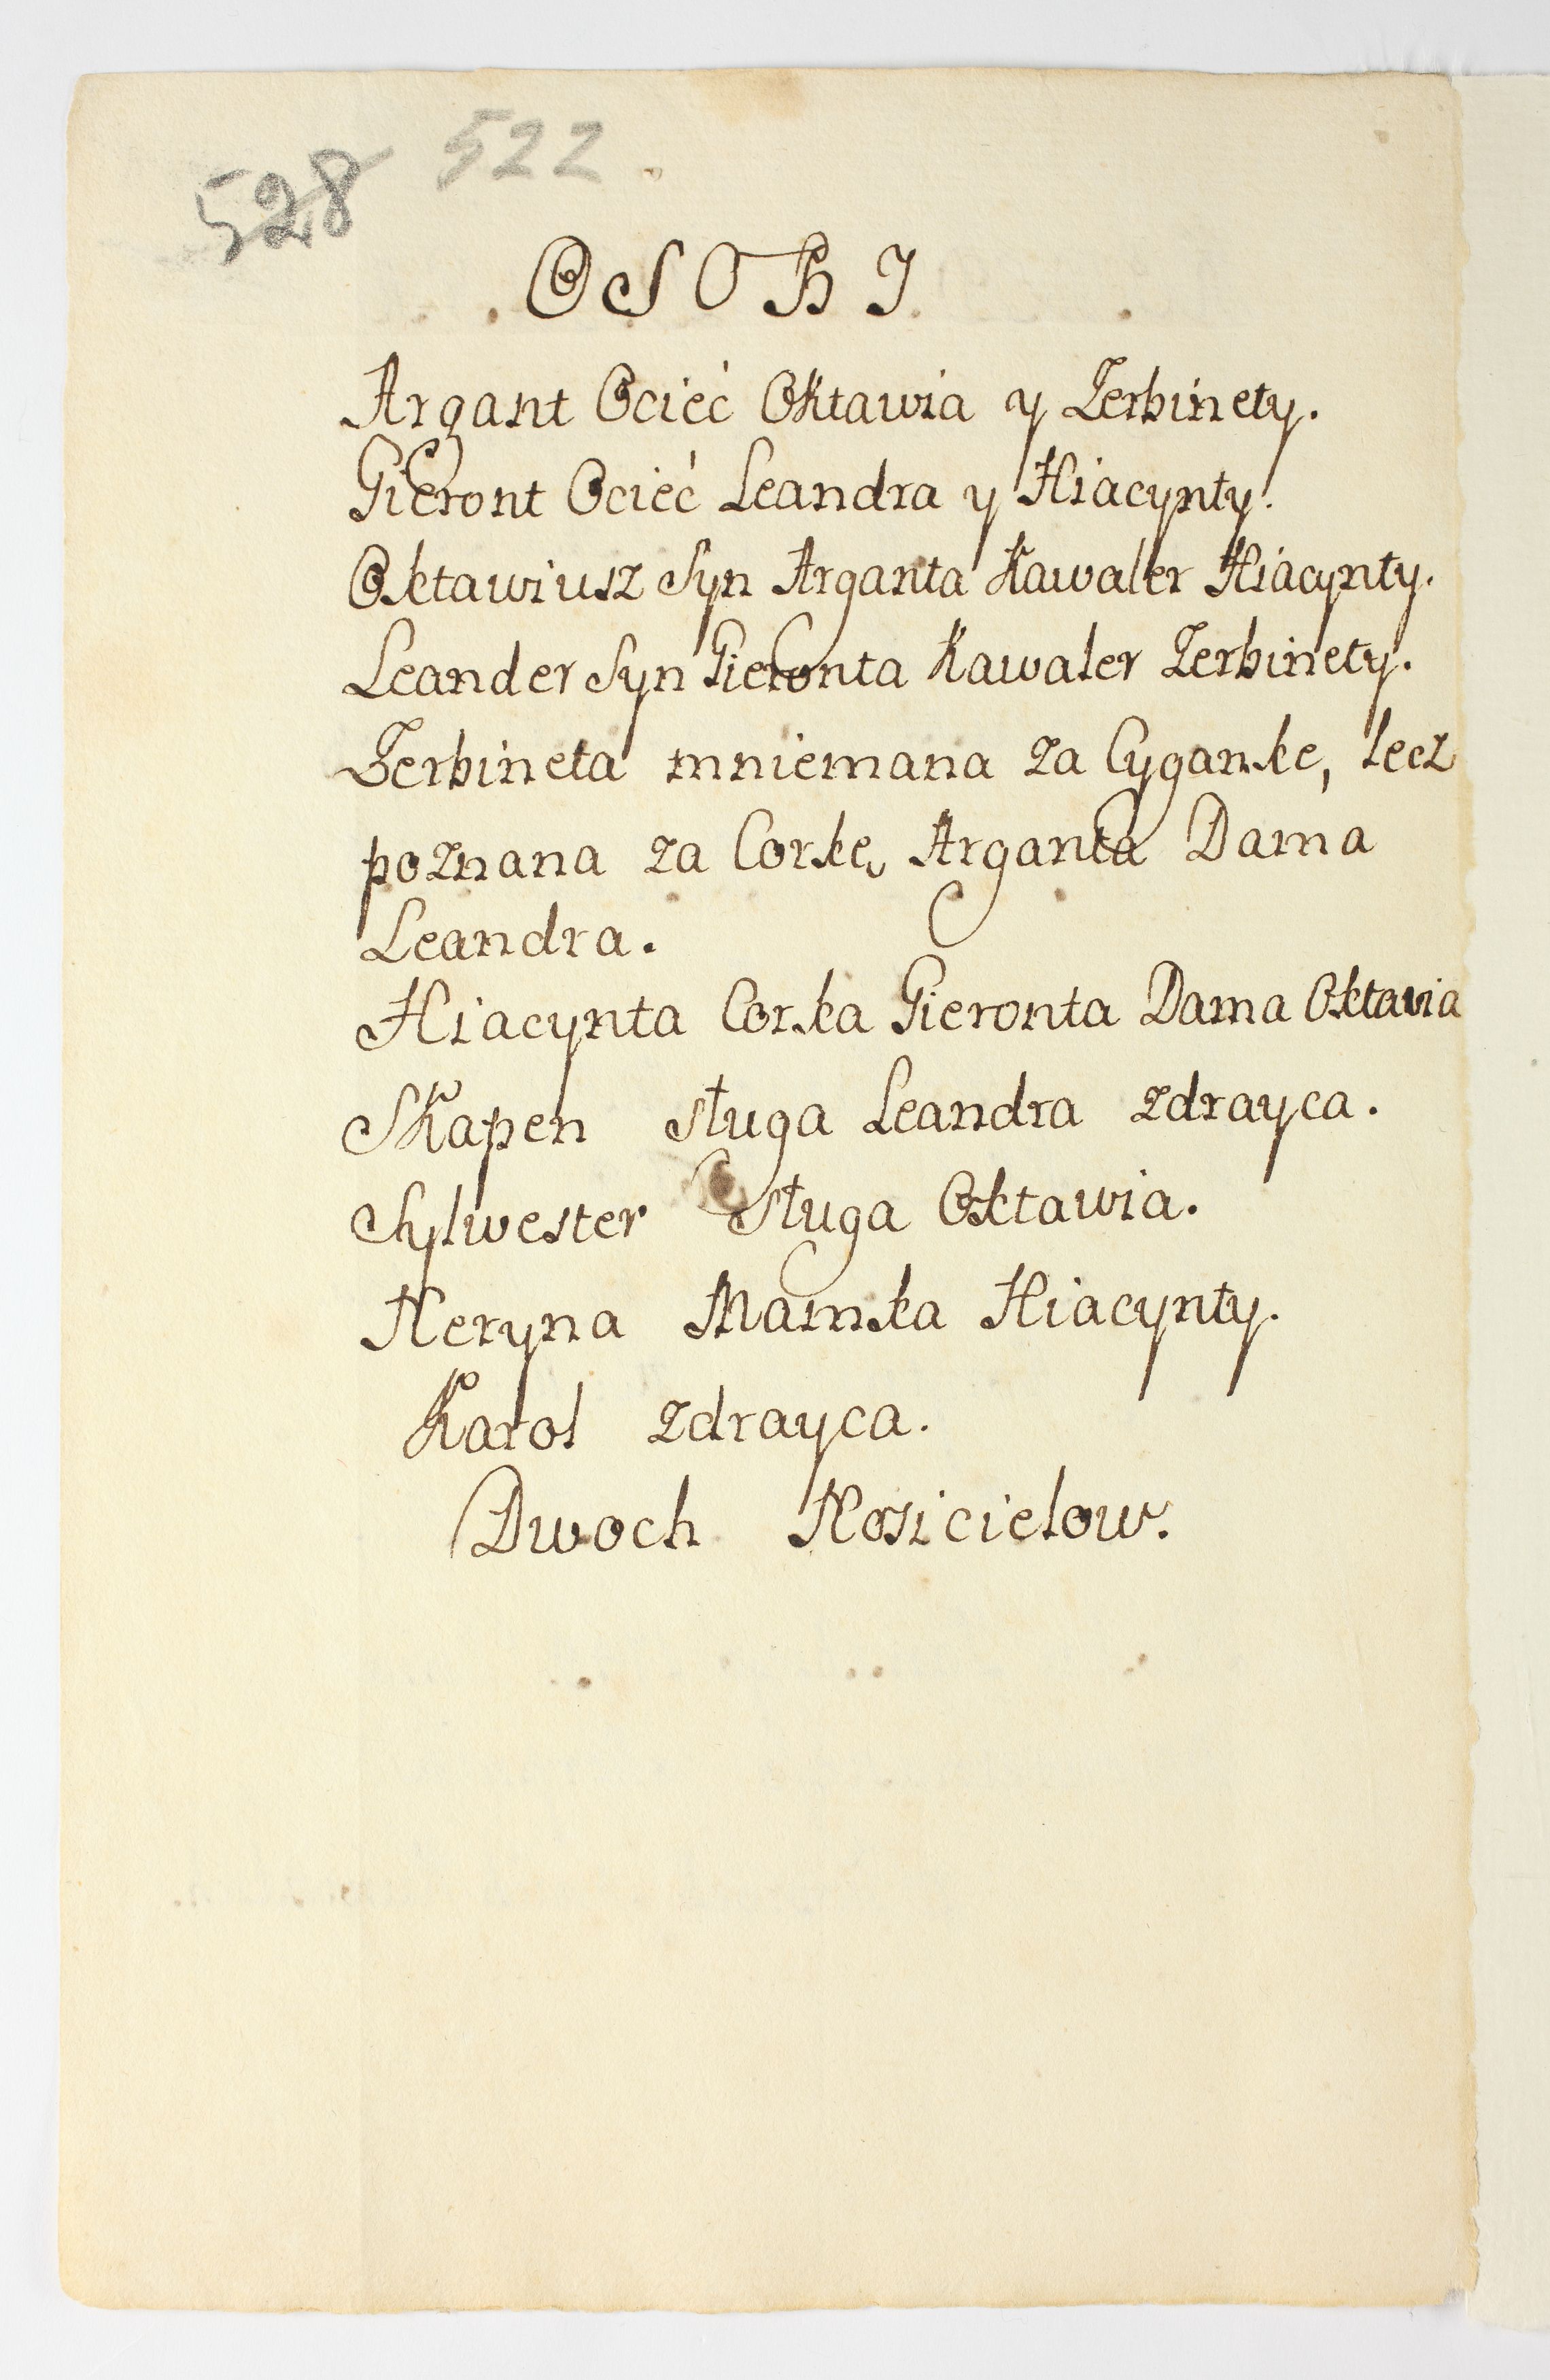 528 522
OSOBJ
Argant Ociéć Oktawia y Zerbinety.
Gieront Ociéć Leandra y Hiacynty.
Oktawiusz Syn Arganta Kawaler Hiacynty.
Leander Syn Gieronta Kawaler Zerbinety.
Zerbineta mniemana za Cyganke, lecz
poznana za Corkę Arganta Dama
Leandra.
Hiacynta Corka Gieronta Dama Oktavia
SKapen sługa Leandra zdrayca.
Sylwester sługa Oktawia.
Neryna Mamka Hiacynty.
Karol zdrayca.
Dwoch Nosicielow.